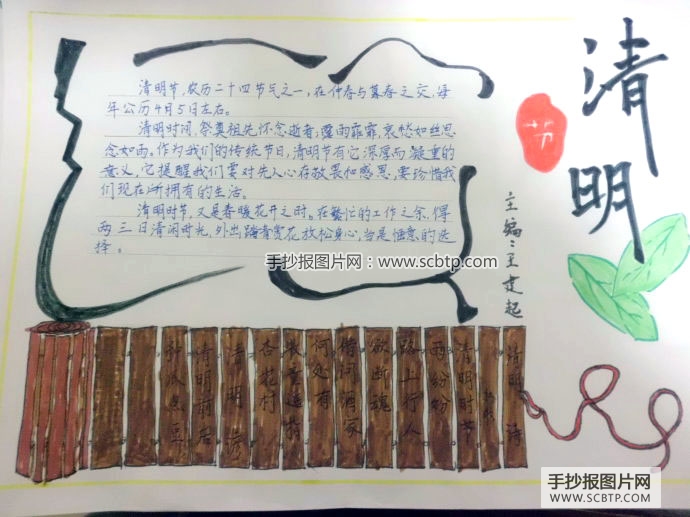 清明
节
主编：王建起
清明节，农历二十四节气之一，在仲春与暮春之交，每
年公历4月5日左右。
清明时间，祭奠祖先怀念逝者，霪雨霏霏，哀愁如丝思
念如雨。作为我们的传统节日，清明节有它深厚而凝重的
意义，它提醒我们要对先人心存敬畏和感恩，要珍惜我
们现在所拥有的生活。
清明时节，又是春暖花开之时。在繁忙的工作之余，得
两三日清闲时光，外出踏青赏花放松身心，当是惬意的选
择。
手抄报图片网：www.scbtp.com
清明 诗
清明时节
雨纷纷
路上行人
欲断魂
借问酒家
何处有
牧童遥指
杏花村
清明 谚
清明前后
种瓜点豆
手抄报图片网
WWW.SCBTP.COM